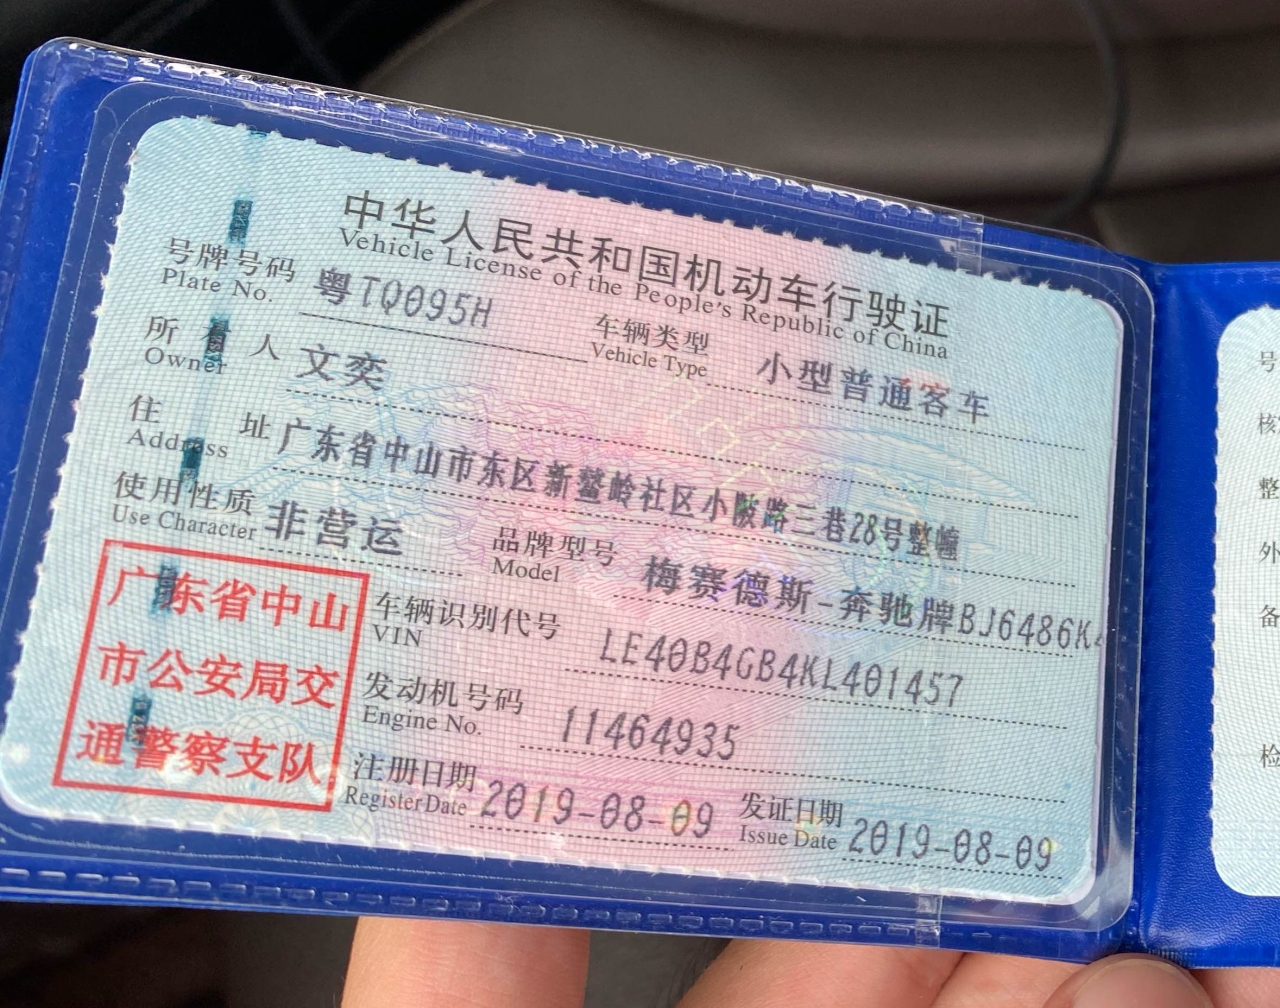 中华人民共和国机动车行驶证
Vehicle License of the People's Republic of China
号牌号码 粤TQ095H 车辆类型 小型普通客车
Plate No. Vehicle Type
所有人 文奕
Owner
住址 广东省中山市东区新鳌岭社区小陂路三巷28号整幢
Address
使用性质 非营运 品牌型号 梅赛德斯-奔驰牌BJ6486K
Use Character Model
车辆识别代号 LE40B4GB4KL401457
VIN
发动机号码 11464935
Engine No.
注册日期 2019-08-09 发证日期 2019-08-09
Register Date Issue Date
广东省中山
市公安局交
通警察支队
号
核
整
外
备
检